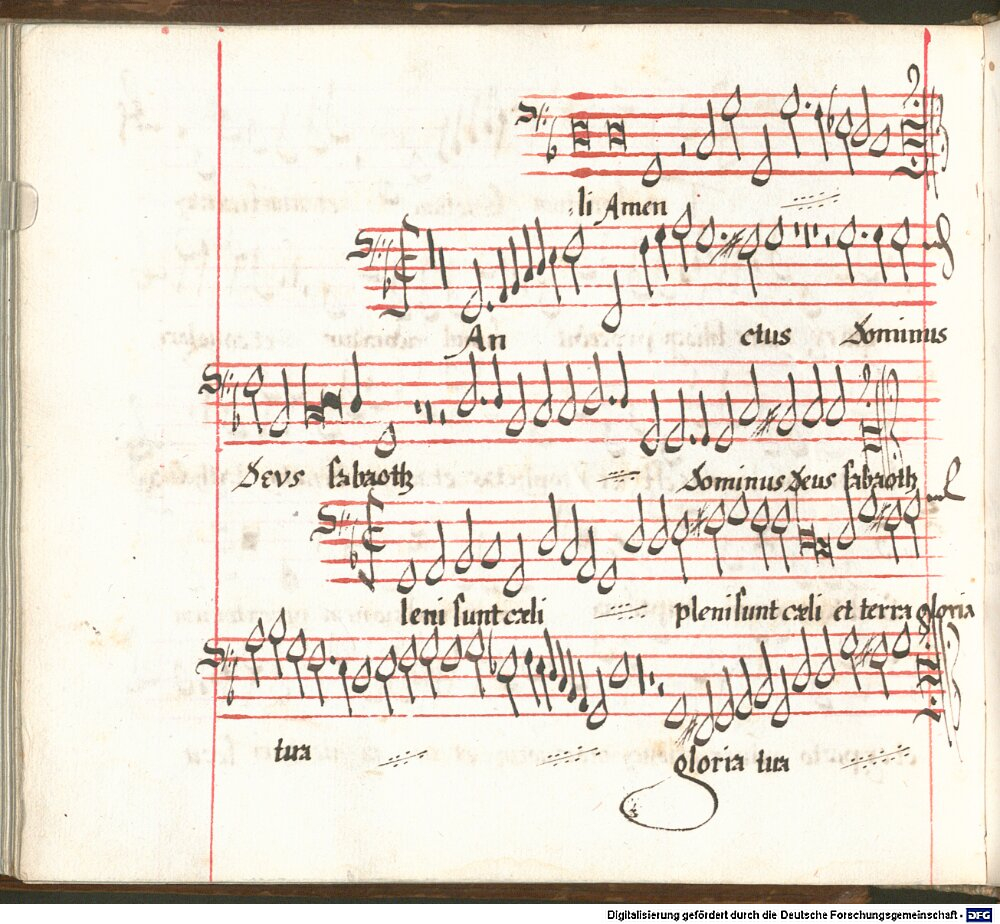 li Amen
An ctus Dominus
Deus sabaoth Dominus Deus sabaoth
leni sunt cæli pleni sunt cæli et terra gloria
tua gloria tua
Digitalisierung gefördert durch die Deutsche Forschungsgemeinschaft - DFG